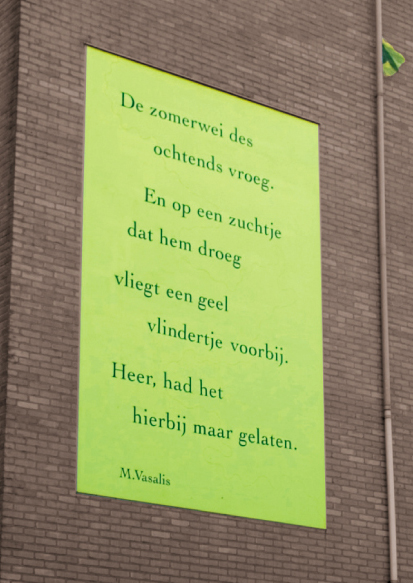 De zomerwei des
ochtends vroeg.
En op een zuchtje
dat hem droeg
vliegt een geel
vlindertje voorbij.
Heer, had het
hierbij maar gelaten.
M.Vasalis